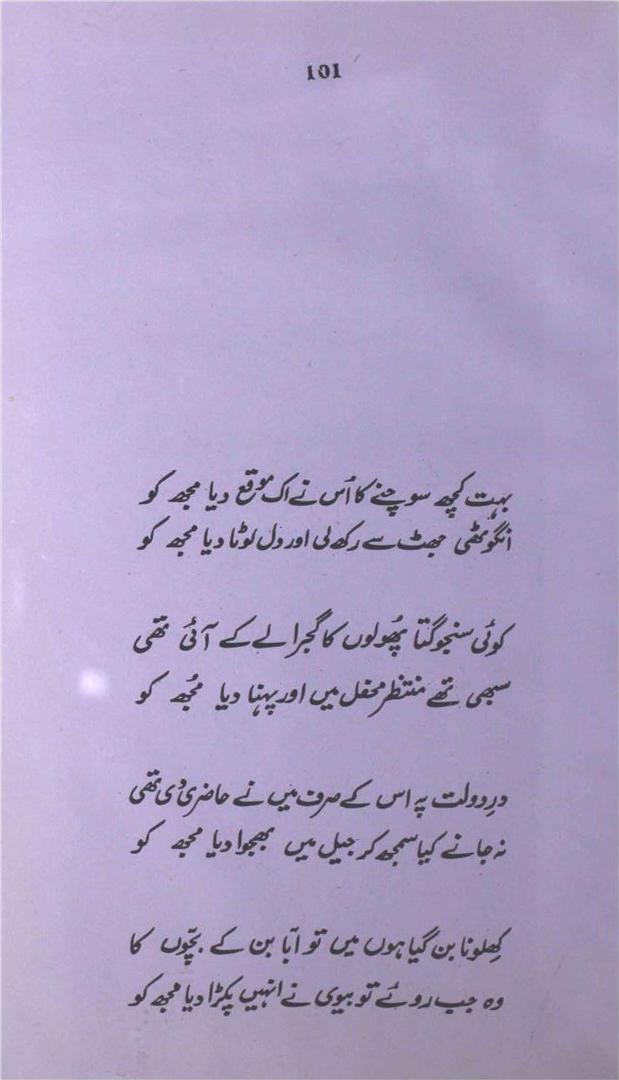 101
بہت کچھ سوچنے کا اُس نے اک موقع دیا مجھ کو
انگوٹھی جھٹ سے رکھ لی اور دل لوٹا دیا مجھ کو
کوئی سنجوگتا پھُولوں کا گجرا لے کے آئی تھی
سبھی تھے منتظر محفل میں اور پہنا دیا مجُھ کو
درِ دولت پہ اس کے صرف میں نے حاضری دی تھی
نہ جانے کیا سمجھ کر جیل میں بھجوا دیا مجھ کو
کھِلونا بن گیا ہوں میں تو ابّا بن کے بچّوں کا
وہ جب روئے تو بیوی نے انہیں پکڑا دیا مجھ کو